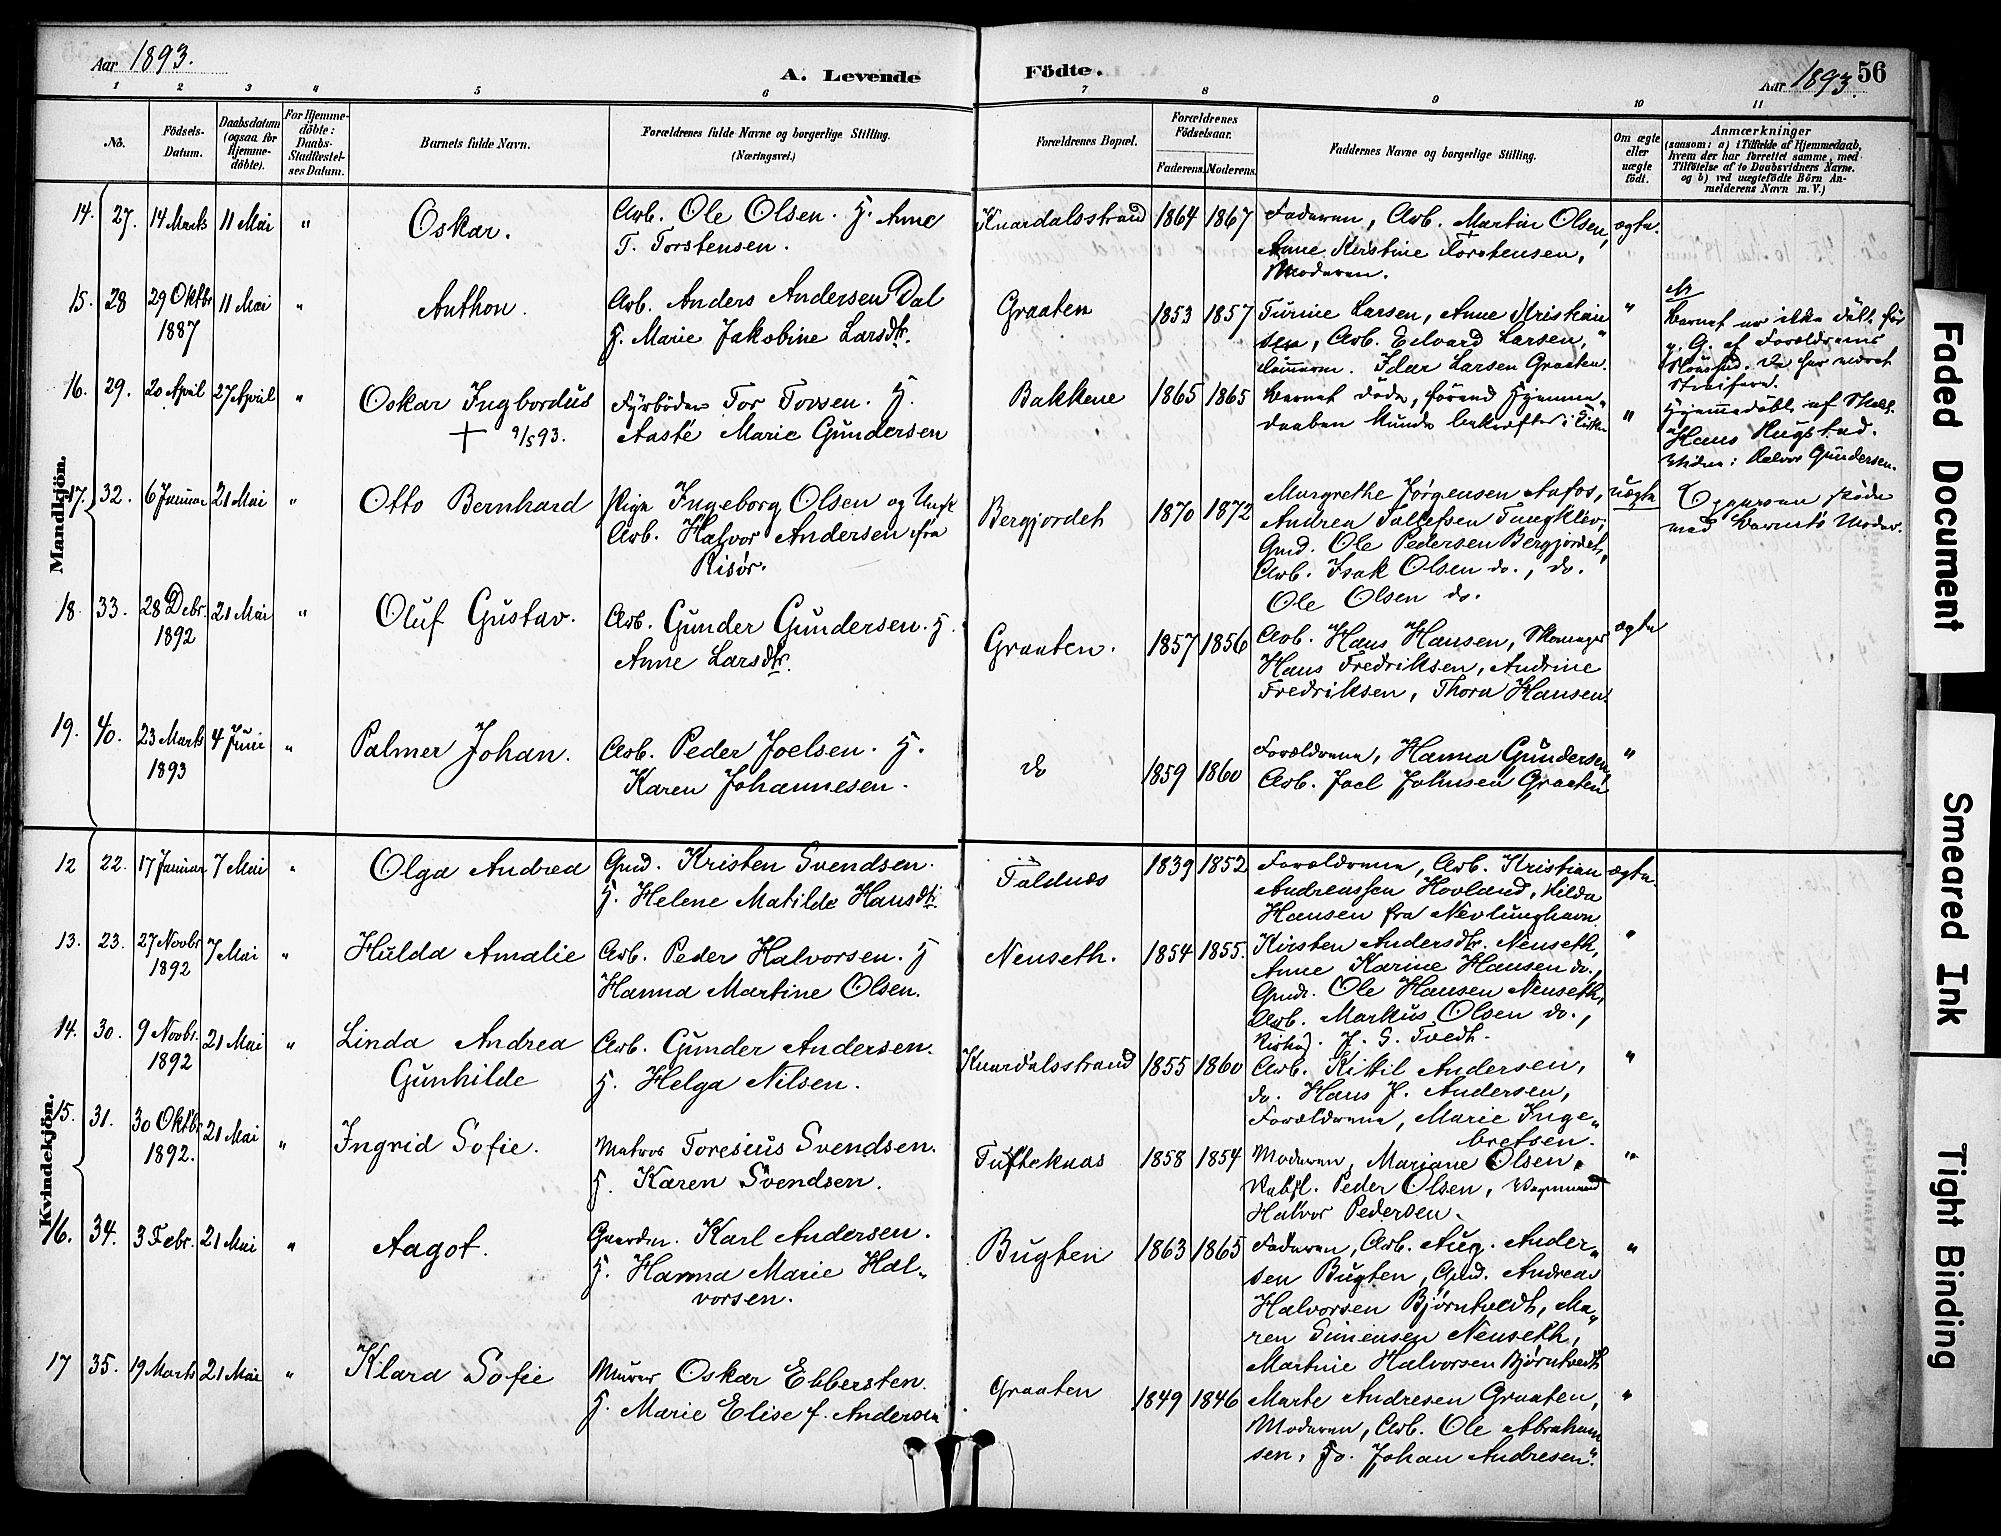 Aar 1893.
A. Levende Födte.
Aar 1893. 56
1 2 3 4 5 6 7 8 9 10 11
No.
Födsels-Datum.
Daabsdatum (ogsaa for Hjemme-döbte).
For Hjemme-döbte: Daabs-Stadfæstel-ses Datum.
Barnets fulde Navn.
Forældrenes fulde Navne og borgerlige Stilling.
(Næringsvei.)
Forældrenes Bopæl.
Forældrenes Födselsaar.
Faderens. Moderens.
Faddernes Navne og borgerlige Stilling.
Om ægte eller uægte födt.
Anmærkninger
(saasom: a) i Tilfælde af Hjemmedaab,
hvem der har forrettet samme, med
Tilföielse af to Daabsvidners Navne.
og b) ved uægtefödte Börn An-
melderens Navn m. V.)
Mandkjön.
14. 27. 14 Marts 11 Mai " Oskar.
Arb. Ole Olsen. H. Anne
T. Torstensen.
Knardalsstrand 1864 1867
Faderen, Arb. Martin Olsen,
Anne Kirstine Torstensen,
Moderen.
ægte.
15. 28 29 Oktbr 1887 11 Mai " Anthon.
Arb. Anders Andersen Dal
H. Marie Jakobine Larsdtr.
Graaten 1853 1857
Turine Larsen, Anne Kristian
sen, Arb. Edvard Larsen,
Tømmerm. Idar Larsen Graaten.
"
Barnet er ikke døbt før
p. G. af Forældrenes
16. 29. 20 April 27 April " Oskar Ingbordus
+ 9/5 93.
Fyrbøder Tor Torsen. H.
Aaste Marie Gundersen
Bakkene 1865 1865
Barnet døde, førend Hjemme-
daaben kunde bekræftes i Kirken
"
Hjemmedøbt af
Hans Rugstad.
Vidne: Halvor Gundersen.
17. 32. 6 Januar 21 Mai " Otto Bernhard
Pige Ingeborg Olsen og Ungk
Arb. Halvor Andersen fra
Risør.
Bergjordet 1870 1872
Margrethe Jørgensen Aafos,
Andrea Tollefsen Tangklev,
Gmd. Ole Pedersen Bergjordet,
Arb. Isak Olsen do., do.
Ole Olsen do.
uægte
Opgaven skede
med Barnets Moder.
18. 33. 28 Debr. 1892 21 Mai " Oluf Gustav.
Arb. Gunder Gundersen. H.
Anne Larsdtr.
Graaten. 1857 1856
Arb. Hans Hansen, Skomager
Hans Fredriksen, Andrine
Fredriksen, Thora Hansen.
ægte
19. 40. 23 Marts 1893 4 Juni " Palmer Johan.
Arb. Peder Joelsen. H.
Karen Johannesen.
do 1859 1860
Forældrene, Hanna Gundersen,
Arb. Joel Johnsen Graaten
"
Kvindekjön.
12 22. 17 Januar 7 Mai " Olga Andrea
Gmd. Kristen Svendsen.
H. Helene Matilde Hansdtr.
Foldnæs 1839 1852
Forældrene, Arb. Kristian
Andreassen Hovland, Hilda
Hansen fra Nevlunghavn
ægte.
13. 23. 27 Novbr 1892 7 Mai " Hulda Amalie
Arb. Peder Halvorsen. H
Hanna Martine Olsen.
Nenseth. 1854 1855.
Kirsten Andersdtr. Nenseth,
Anne Karine Hansen do.,
Gmd. Ole Hansen Nenseth,
Arb. Markus Olsen do.,
J. S. Tvedt.
"
14. 30. 9 Novbr. 1892 21 Mai " Linda Andrea
Gunhilde
Arb. Gunder Andersen.
H. Helga Nilsen.
Knardalsstrand 1855 1860
Arb. Kittil Andersen,
do. Hans J. Andersen,
Forældrene, Marie Inge-
bretsen.
"
15. 31. 30 Oktbr 1892. 21 Mai " Ingrid Sofie.
Matros Toresius Svendsen.
H. Karen Svendsen.
Tufteknas 1858 1854
Moderen, Mariane Olsen,
Peder Olsen,
Halvor Pedersen.
"
16. 34. 3 Febr. 21 Mai " Aagot.
Gaardm. Karl Andersen.
H. Hanna Marie Hal-
vorsen.
Bugten 1863 1865
Faderen, Arb. Aug. Ander-
sen Bugten, Gmd. Andreas
Halvorsen Bjørntvedt, Ma-
ren Simensen Nenseth,
Martine Halvorsen Bjørntvedt
"
17 35. 19 Marts 21 Mai " Klara Sofie
Murer Oskar Ebbersten.
H. Marie Elise f. Andersen
Graaten 1849 1846
Marte Andresen Graaten,
Moderen, Arb. Ole Abraham
sen, Johan Andresen.
"
Faded Document
Smeared Ink
Tight Binding